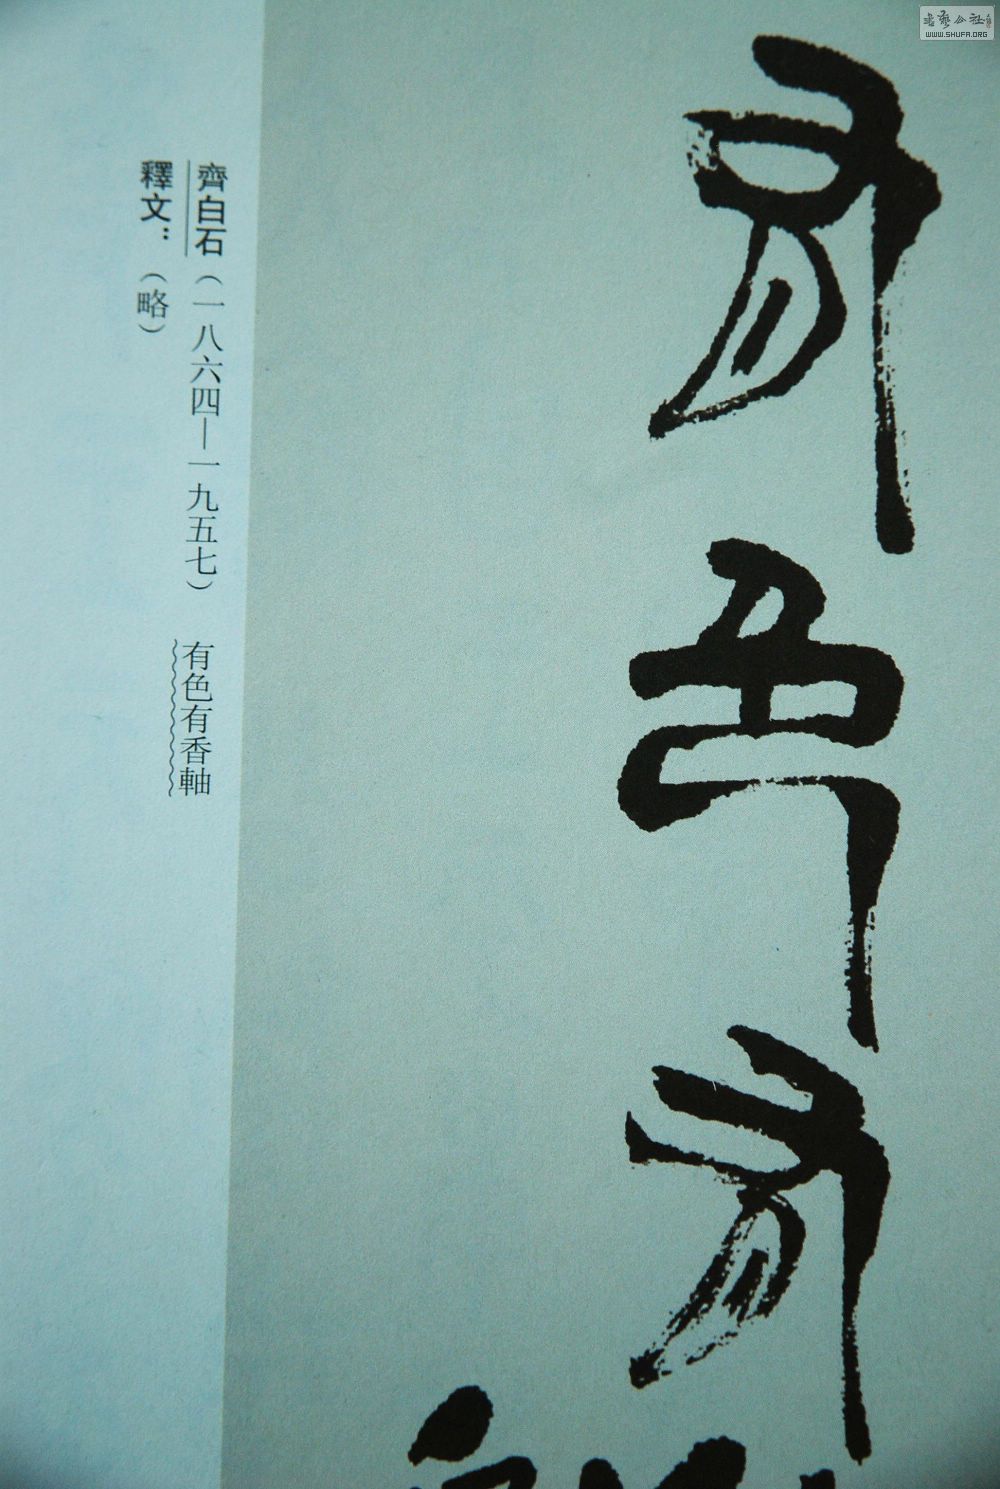 有色有
齊白石（一八六四—一九五七） 有色有香軸
釋文：（略）
書藝公社
WWW.SHUFA.ORG